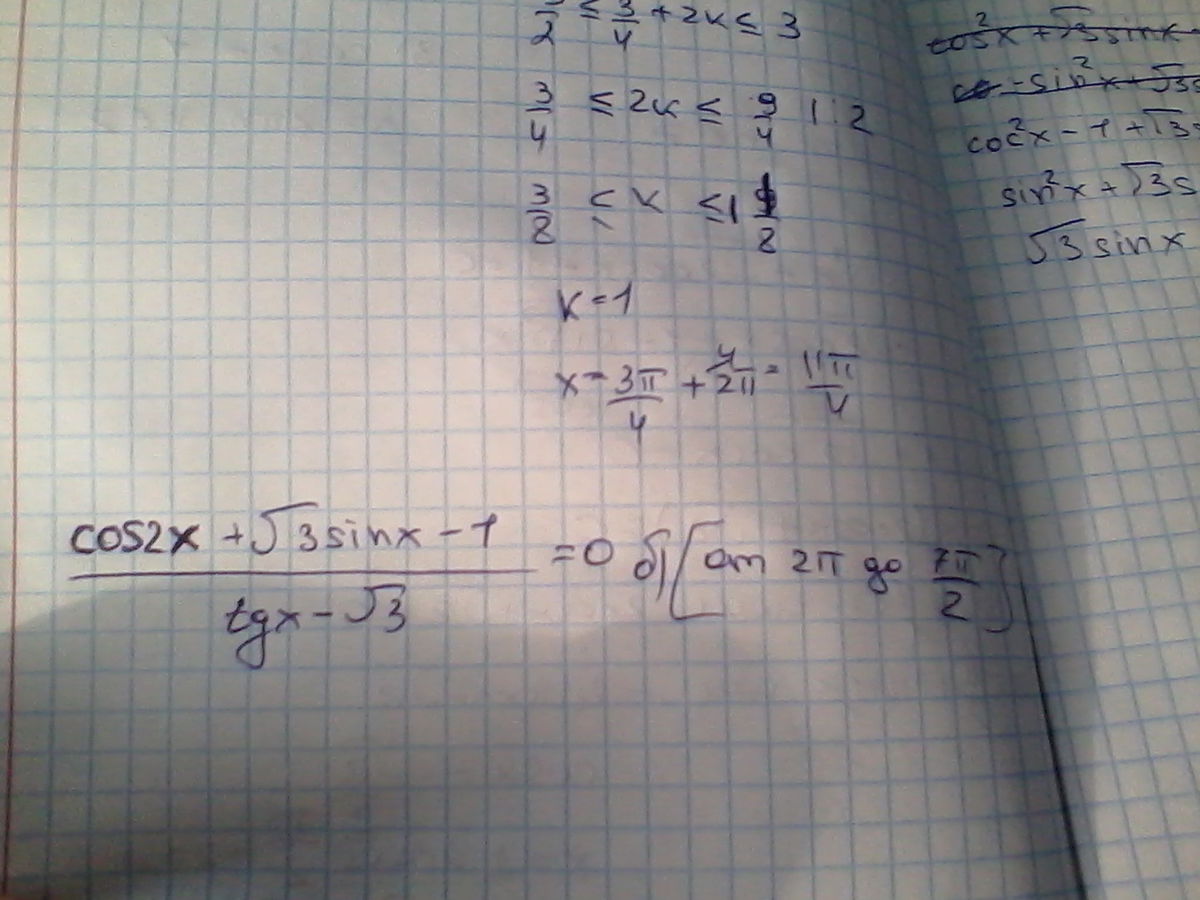 1/2 ≤ 3/4 + 2к ≤ 3
3/4 ≤ 2к ≤ 9/4 | : 2
3/8 ≤ к ≤ 1 1/8
к = 1
x = 3π/4 + 2π = 11π/4
(cos2x + √3 sinx - 1)/(tgx - √3) = 0 б) [от 2π до 7π/2]
cos²x + √3 sinx
- sin²x + √3
coc²x - 1 + √3
sin²x + √3 s
√3 sinx